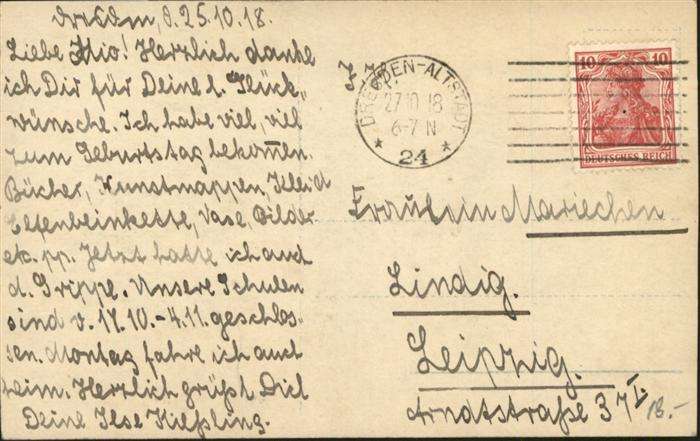 Dresden, d. 25.10.18.
Liebe Mio! Herzlich danke
ich Dir für Deine l. Glück„
wünsche. Ich habe viel, viel
zum Geburtstag bekommen.
Bücher, Kunstmappen, Kleid
Elfenbeinkette, Vase, Bilder
etc. pp. Jetzt hatte ich auch
d. Grippe. Unsere Schulen
sind v. 17.10.-4.11. geschlos-
sen. Montag fahre ich auch
heim. Herzlich grüßt Dich
Deine Ilse Kießling.
DRESDEN-ALTSTADT
27.10.18
6-7 N
* 24 *
10 10
DEUTSCHES REICH
Fräulein Mariechen
Lindig.
Leipzig.
Arndtstraße 37 I.
18.-